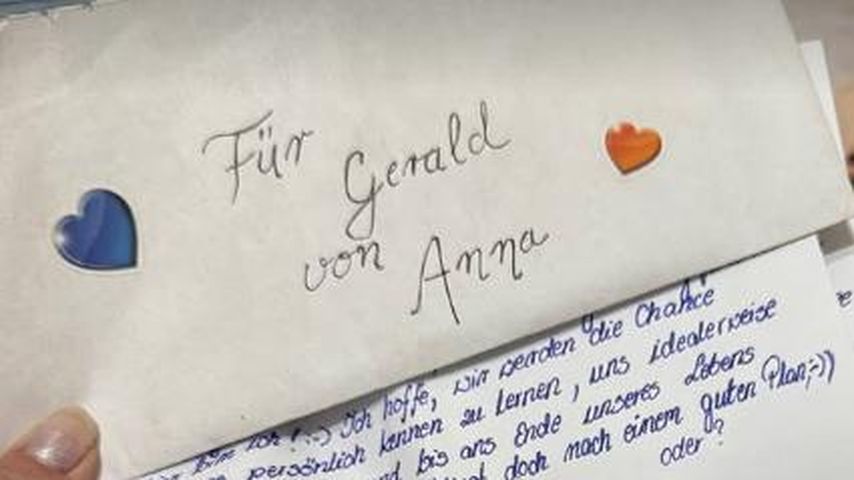 Für Gerald
von Anna
die Chance
ich !:-) Ich hoffe, wir werden
persönlich kennen zu lernen, uns idealerweise
bis ans Ende unseres Lebens
doch nach einem guten Plan;-))
oder?